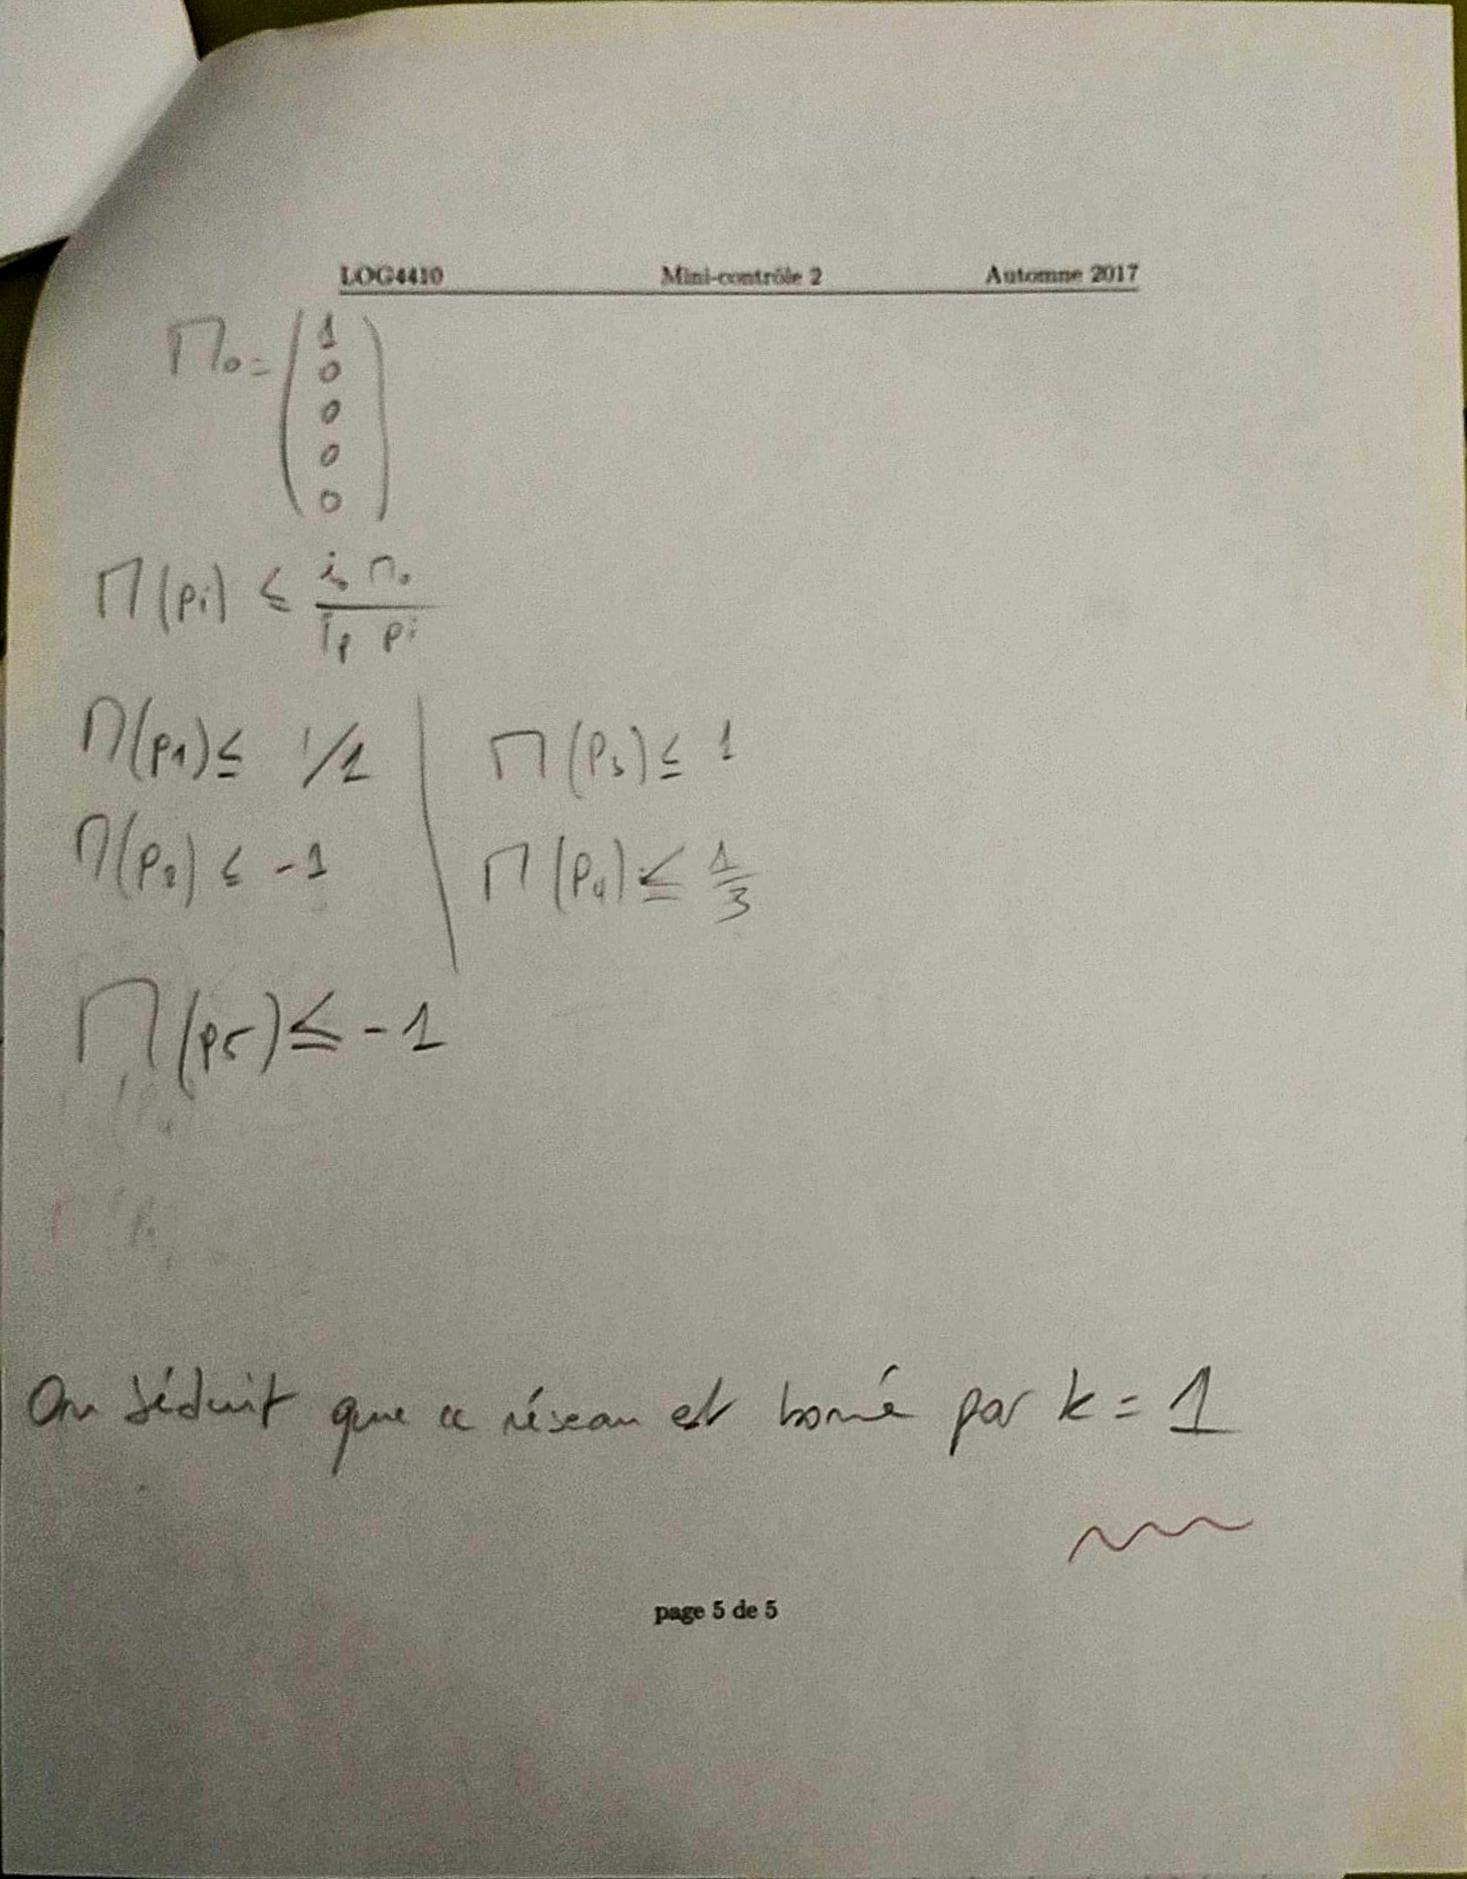 LOG4410 Mini-contrôle 2 Automne 2017
M₀ = (1 0 0 0 0)
M(pi) ≤ i₀ M₀ / Ip pi
M(p1) ≤ 1/1 | M(p3) ≤ 1
M(p2) ≤ -1 | M(p4) ≤ 1/3
M(p5) ≤ -1
On déduit que ce réseau est borné par k = 1
page 5 de 5